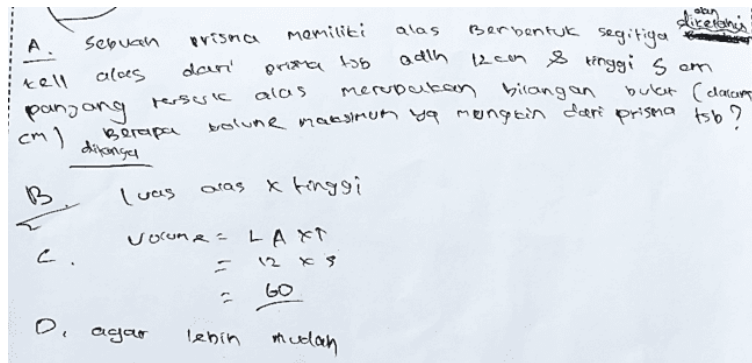 dan
A. Sebuah prisma memiliki alas Berbentuk segitiga diketahui
kell alas dari prisma tsb adlh 12 cm & tinggi 5 cm
panjang rersusk alas merupakan bilangan bulat (dalam
cm) Berapa volume maksimum yg mungkin dari prisma tsb?
ditanya
B. luas alas x tinggi
C. Volume = L A x T
= 12 x 5
= 60
D. agar lebih mudah